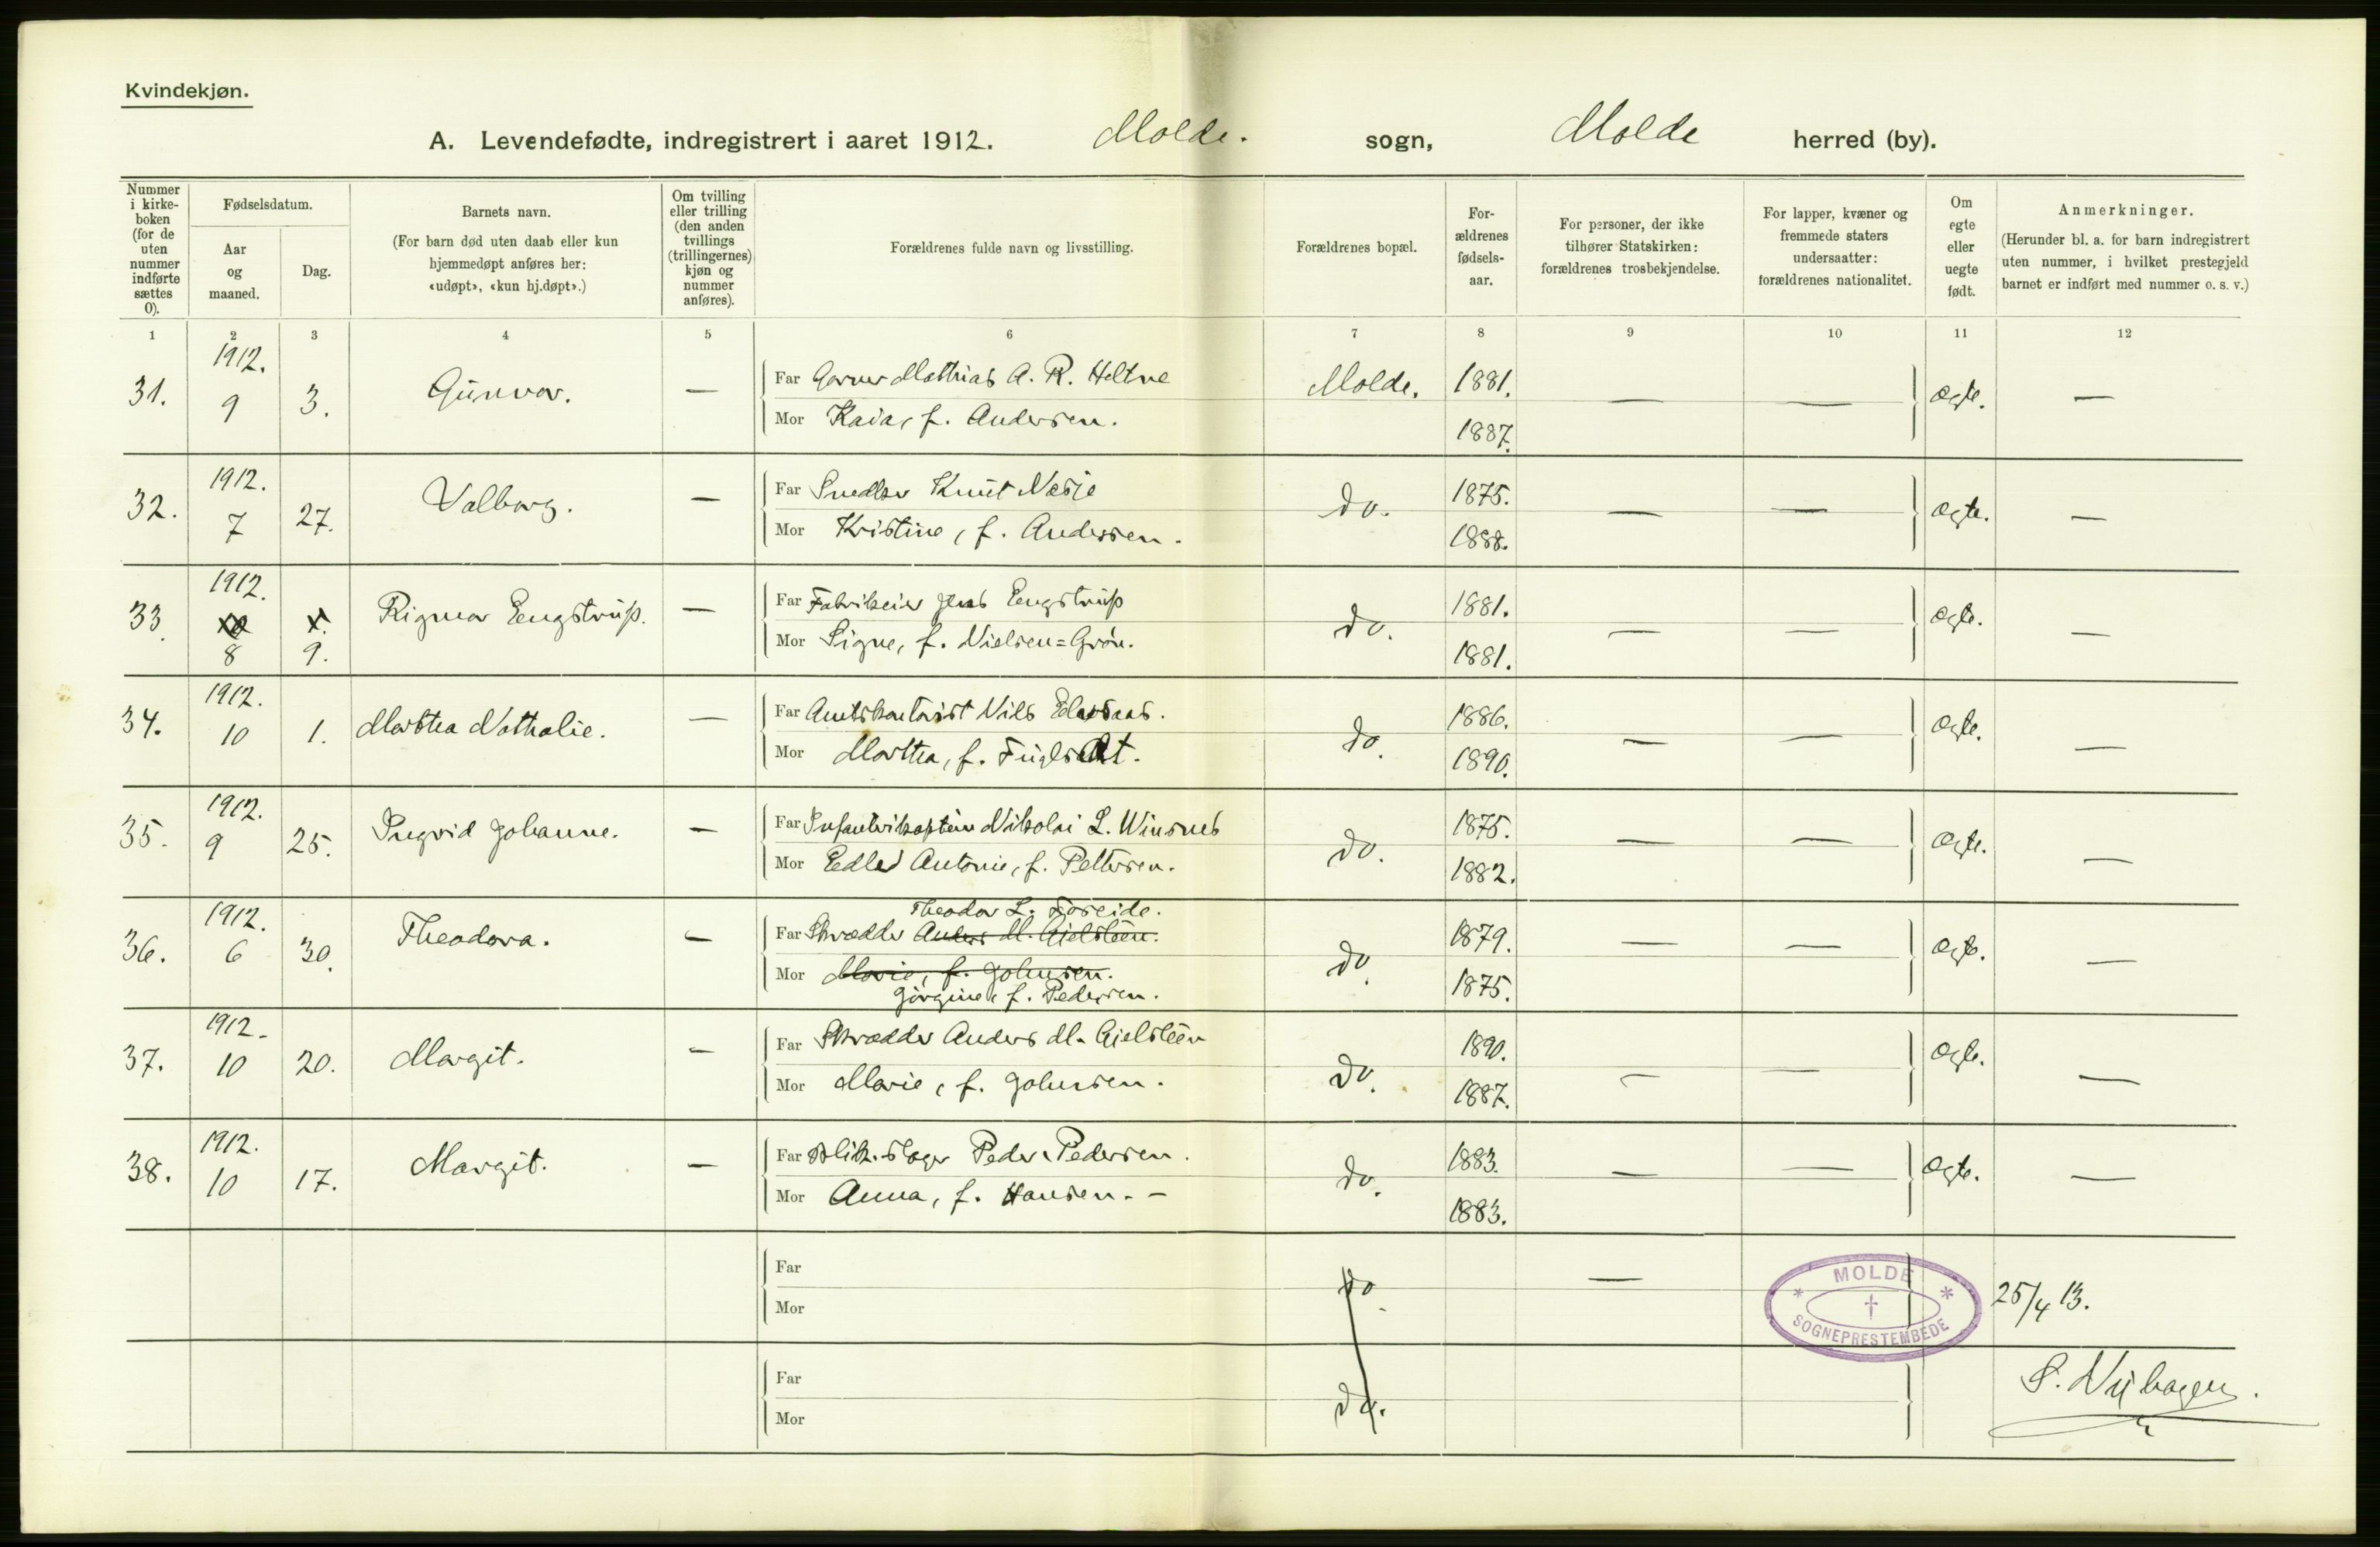 Kvindekjøn.
A. Levendefødte, indregistrert i aaret 1912. Molde. sogn, Molde herred (by).
Nummer i kirke-boken (for de uten nummer indførte sættes 0).
Fødselsdatum.
Aar og maaned.
Dag.
Barnets navn.
(For barn død uten daab eller kun hjemmedøpt anføres her: «udøpt», «kun hj.døpt».)
Om tvilling eller trilling (den anden tvillings (trillingernes) kjøn og nummer anføres).
Forældrenes fulde navn og livsstilling.
Forældrenes bopæl.
For-ældrenes fødsels-aar.
For personer, der ikke tilhører Statskirken: forældrenes trosbekjendelse.
For lapper, kvæner og fremmede staters undersaatter: forældrenes nationalitet.
Om egte eller uegte født.
Anmerkninger.
(Herunder bl. a. for barn indregistrert uten nummer, i hvilket prestegjeld barnet er indført med nummer o. s. v.)
1 2 3 4 5 6 7 8 9 10 11 12
31. 1912. 9 3. Gunvor. — Far Garver Mathias A. R. Heltne Molde. 1881. — — Ægte. —
Mor Kaia, f. Andersen. 1887.
32. 1912. 7 27. Valborg. — Far Knut Nesje do. 1875. — — Ægte. —
Mor Kristine, f. Andersen. 1888.
33. 1912. 8 9. Rigmor Engstrup. — Far Fabrikeier Jens Engstrup do. 1881. — — Ægte. —
Mor Signe, f. Nielsen=Grön. 1881.
34. 1912. 10 1. Marthea Nathalie. — Far Amtskontorist Nils do. 1886. — — Ægte. —
Mor Marthea, f. 1890.
35. 1912. 9 25. Ingvid Johanne. — Far Infanterikaptein Nikolai L. Winsnes do. 1875. — — Ægte. —
Mor Antonie, f. Pettersen. 1882.
Theodor L. Foreide.
36. 1912. 6 30. Theodora. — Far Skrædder Anders M. Gjelsteen. do. 1879. — — Ægte. —
Mor Marie, f. Johnsen. 1875.
Jörgine, f. Pedersen.
37. 1912. 10 20. Margit. — Far Skrædder Anders M. Gjelsteen do. 1890. — — Ægte. —
Mor Marie, f. Johnsen. 1887.
38. 1912. 10 17. Margit. — Far Blik.slager Peder Pedersen. do. 1883. — — Ægte. —
Mor Anna, f. Hansen. - 1883.
Far do — MOLDE * † * SOGNEPRESTEMBEDE 25/4 13.
Mor
Far do.
Mor